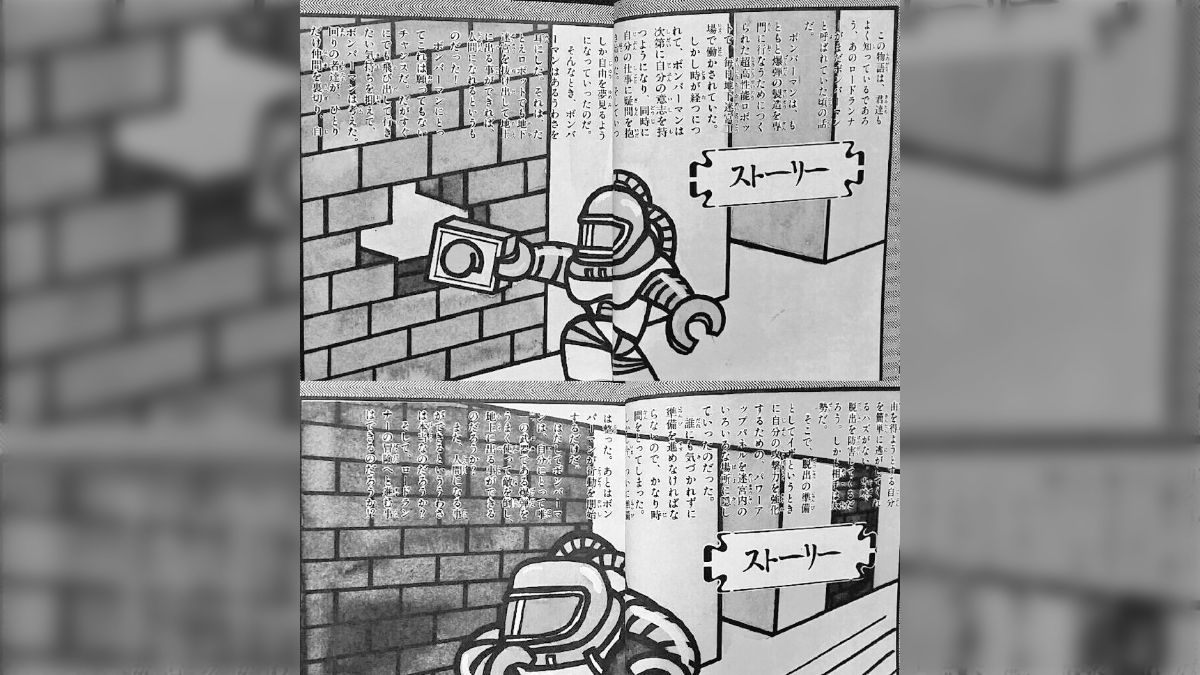 ストーリー
この物語は、君達も
よく知っているであろ
う、あのロードランナ
と呼ばれていた頃の話
だ。
ボンバーマンは、も
ともと爆弾の製造を専
門に行なうためにつく
られた超高性能ロボッ
トで、毎日地下迷宮工
場で働かされていた。
しかし時が経つにつ
れて、ボンバーマンは
次第に自分の意志を持
つようになり、同時に
自分の仕事に疑問を抱
しか自由を夢見るよう
になっていったのだ。
そんなとき、ボンバ
ーマンはあるうわさを
耳にした。それは、た
とえロボットでも地下
迷宮を抜け出して地上
に出る事ができれば、
人間になれるというも
のだった！
ボンバーマンによっ
てこれは願ってもない
チャンスだ。だがすぐ
にでも飛び出して行き
たい気持ちを抑えて、
ボンバーマンは考えた。
回りの者達が、ひとり
だけ仲間を裏切り、自
ストーリー
由を得ようとする自分
を簡単に逃がしてくれ
るハズがない。
脱出を防害してくるだ
ろう。しかし相手は
勢だ。
そこで、脱出の準備
としてイザというとき
に自分の攻撃力を強化
するための、パワーア
ップパネルを迷宮内の
いろいろな場所に隠し
ていったのだった。
誰にも気づかれずに
準備を進めなければな
らないので、かなり時
間をとってしまった。
は終った。あとはボン
バーマンが行動を開始
するだけだ。
はたしてボンバーマ
ンは、自分にとって唯
一の武器である爆弾を
うまく使って敵を倒し、
地上に出る事ができる
のだろうか？
また、人間になる事
ができるといううわさ
は本当なのだろうか？
そして、ロードラン
ナーの冒険へと進む事
はできるのだろうか？